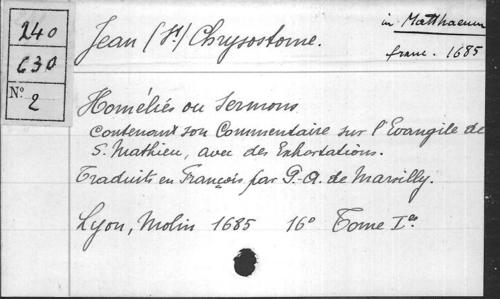 240
630
Nº
2
Jean (St) Chrysostome.
in Matthaeum
franc. 1685
Homéliés ou Sermons
contenant son Commentaire sur l'Evangile de
S. Mathieu, avec des Exhortations.
Traduits en François par P.-A. de Marsilly.
Lyon, Molin 1685 16º Tome Ier